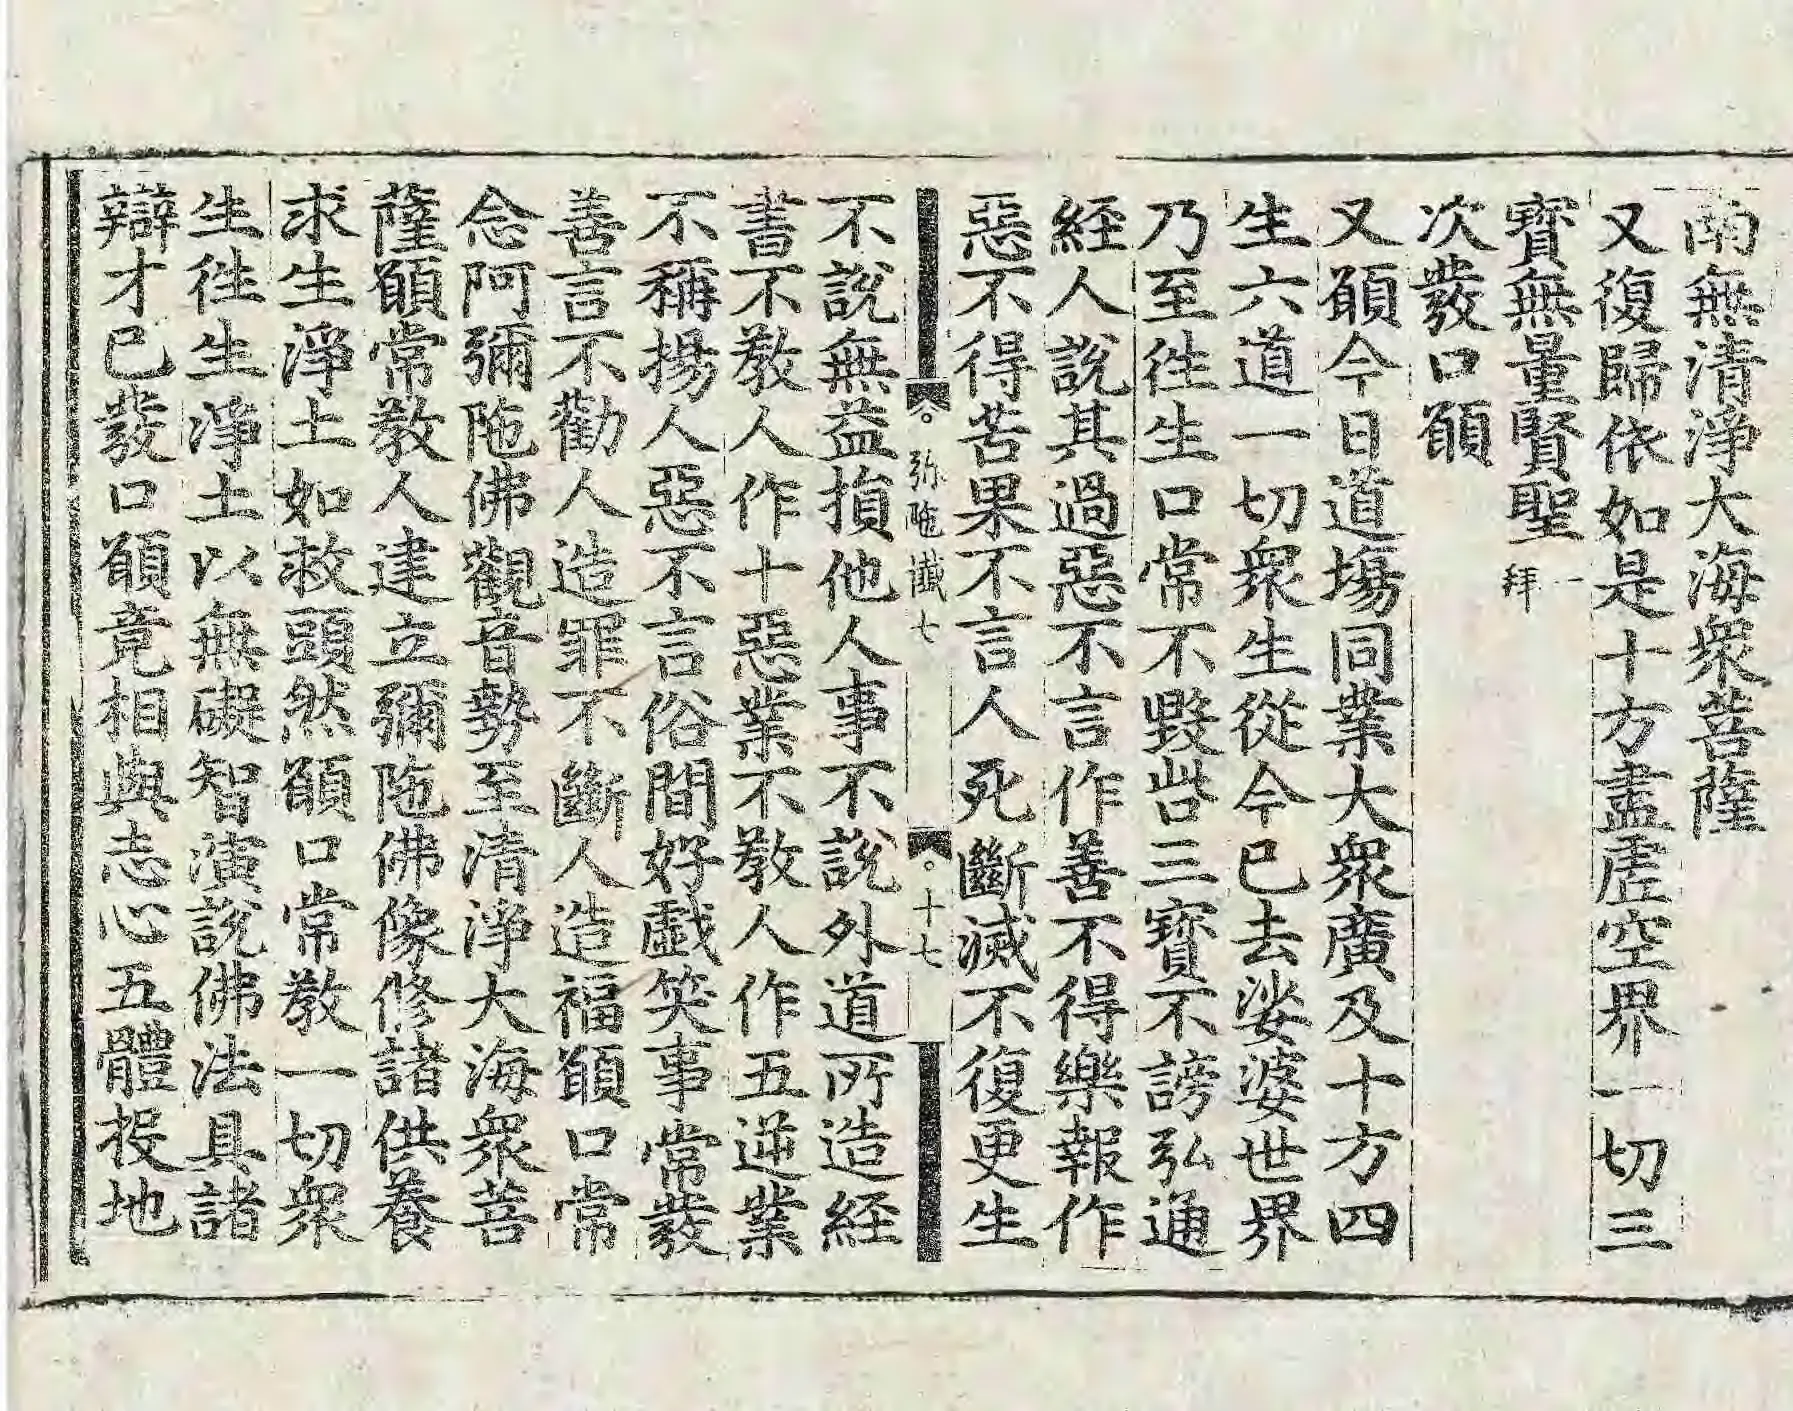 南無清淨大海衆菩薩
又復歸依如是十方盡虗空界一切三
寶無量賢聖 一拜
次發口願
又願今日道場同業大衆廣及十方四
生六道一切衆生從今已去娑婆世界
乃至徃生口常不毀呰三寶不謗弘通
經人說其過惡不言作善不得樂報作
惡不得苦果不言人死斷滅不復更生
弥陁懺七 十七
不說無益損他人事不說外道所造經
書不教人作十惡業不教人作五逆業
不稱揚人惡不言俗間好戲笑事常發
善言不勸人造罪不斷人造福願口常
念阿彌陁佛觀音勢至清淨大海衆菩
薩願常教人建立彌陁佛像修諸供養
求生淨土如救頭然願口常教一切衆
生徃生淨土以無礙智演說佛法具諸
辯才已發口願竟相與志心五體投地